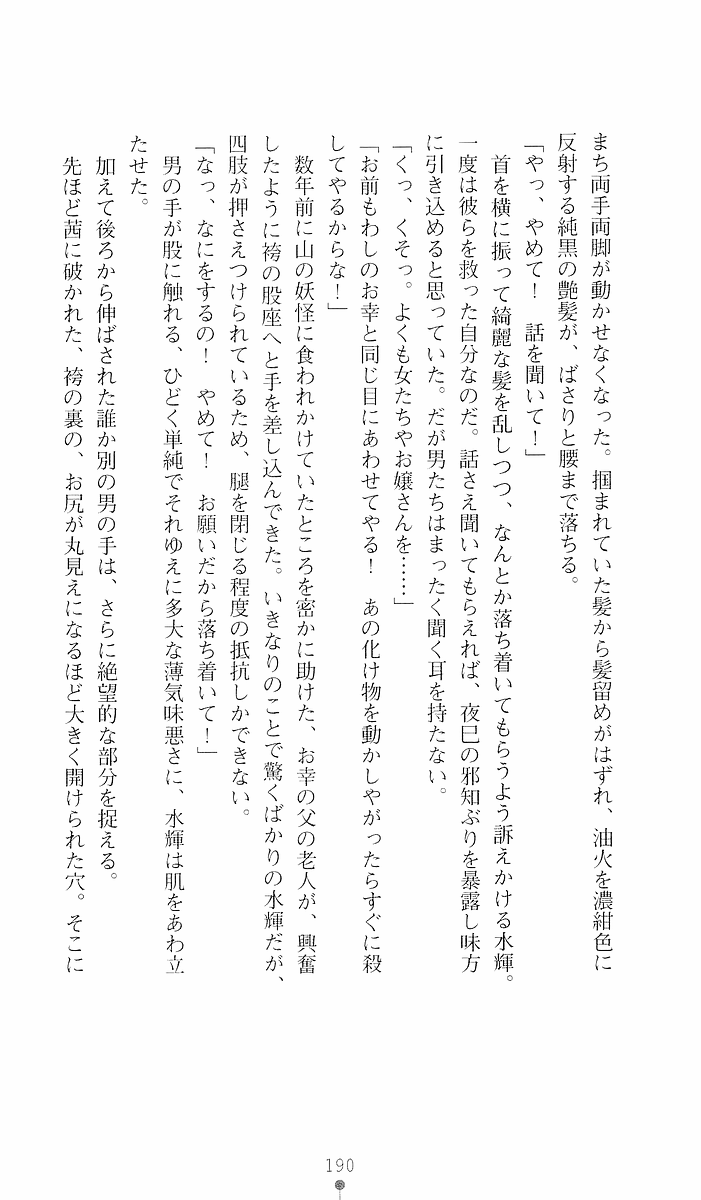 まち両手両脚が動かせなくなった。掴まれていた髪から髪留めがはずれ、油火を濃紺色に
反射する純黒の艶髪が、ばさりと腰まで落ちる。
「やっ、やめて！　話を聞いて！」
　首を横に振って綺麗な髪を乱しつつ、なんとか落ち着いてもらうよう訴えかける水輝。
一度は彼らを救った自分なのだ。話さえ聞いてもらえれば、夜巳の邪知ぶりを暴露し味方
に引き込めると思っていた。だが男たちはまったく聞く耳を持たない。
「くっ、くそっ。よくも女たちやお嬢さんを……」
「お前もわしのお幸と同じ目にあわせてやる！　あの化け物を動かしやがったらすぐに殺
してやるからな！」
　数年前に山の妖怪に食われかけていたところを密かに助けた、お幸の父の老人が、興奮
したように袴の股座へと手を差し込んできた。いきなりのことで驚くばかりの水輝だが、
四肢が押さえつけられているため、腿を閉じる程度の抵抗しかできない。
「なっ、なにをするの！　やめて！　お願いだから落ち着いて！」
　男の手が股に触れる、ひどく単純でそれゆえに多大な薄気味悪さに、水輝は肌をあわ立
たせた。
　加えて後ろから伸ばされた誰か別の男の手は、さらに絶望的な部分を捉える。
　先ほど茜に破かれた、袴の裏の、お尻が丸見えになるほど大きく開けられた穴。そこに
190